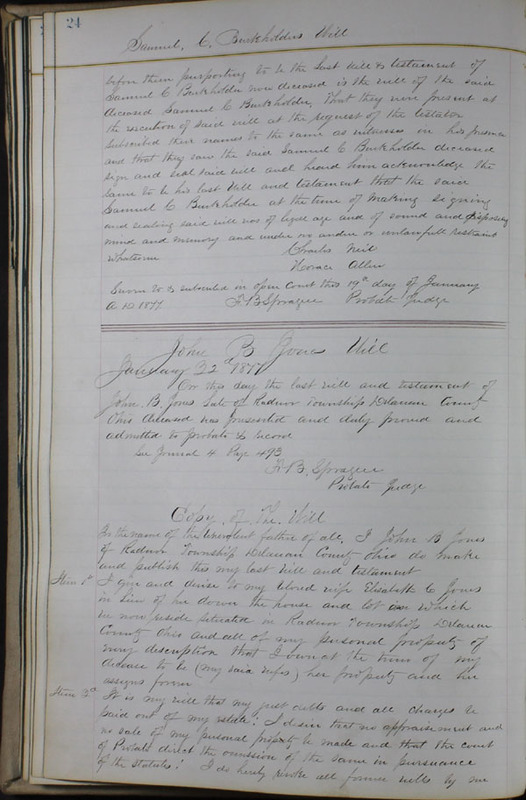 24
Samuel. C. Burkholders Will
before them purporting to be the last will & testament of
Samuel C Burkholder now deceased is the will of the said
deceased Samuel C Burkholder, that they were present at
the execution of said will at the request of the testator
subscribed their names to the same as witnesses in his presence
and that they saw the said Samuel C Burkholder deceased
sign and seal said will and heard him acknowledge the
same to be his last Will and testament that the said
Samuel C Burkholder at the time of making signing
and sealing said will was of legal age and of sound and disposing
mind and memory and under no undue or unlawfull restraint
whatsoever
Charles Neil
Horace Allen
Sworn to & subscribed in open Court this 19th day of January
A D. 1877.
F B Sprague Probate Judge
John B Jones Will
January 22d 1877
On this day the last will and testament of
John. B. Jones late of Radnor Township Delaware County
Ohio deceased was presented and duly proved and
admitted to probate & record
See Journal 4 Page 493
F. B. Sprague
Probate Judge
Copy of The Will
In the name of the benevolent father of all, I John B Jones
of Radnor Township Delaware County Ohio do make
and publish this my last will and testament
Item 1st I give and devise to my beloved wife Elisabeth C Jones
in lieu of her dower the house and lot on which
we now reside situated in Radnor Township Delaware
County Ohio and all of my personal property of
every description that I own at the time of my
decease to be (my said wifes) her property and her
assigns forever
Item 2d It is my will that my just debts and all charges be
paid out of my estate. I desire that no appraisement and
no sale of my personal property be made and that the court
of Probate direct the omission of the same in pursuance
of the statutes. I do hereby revoke all former wills by me